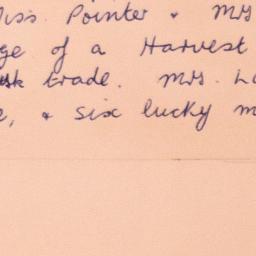 Miss. Pointer & Mrs
ge of a Harvest
sk trade. Mrs. L
e, & six lucky m